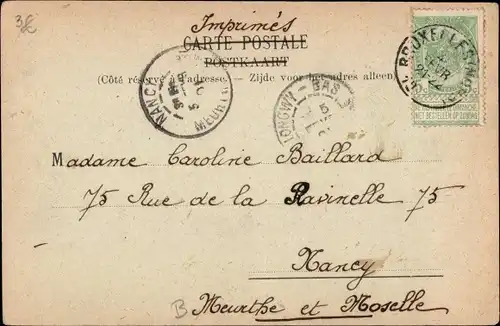 3€
Imprimés
CARTE POSTALE
POSTKAART
(Côté réservé à l'adresse. — Zijde voor het adres alleen)
BRUXELLES
NANCY
MEURTHE
LONGWY - BAS
NIET BESTELLEN OP ZONDAG
Madame Caroline Baillard
75 Rue de la Ravinelle 75
Nancy
B
Meurthe et Moselle